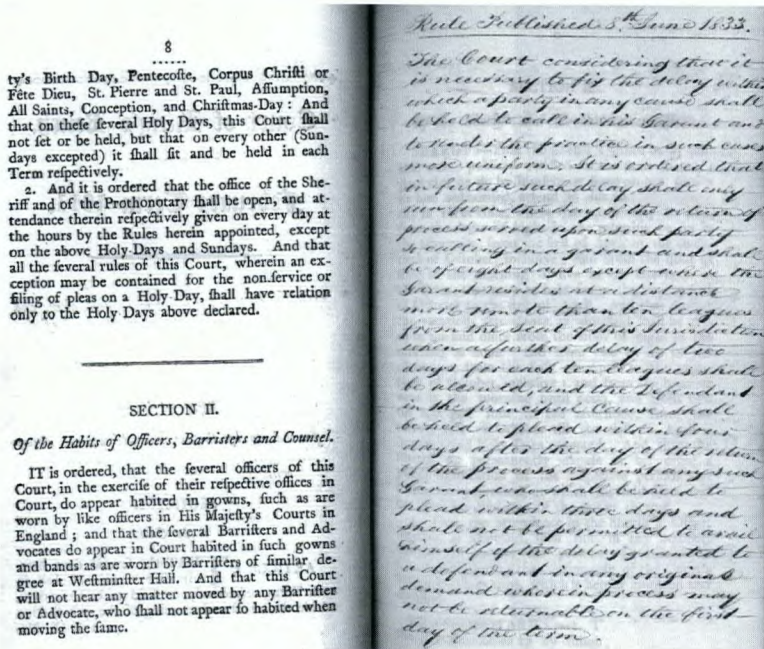 8
ty's Birth Day, Pentecoſte, Corpus Chriſti or
Fête Dieu, St. Pierre and St. Paul, Aſſumption,
All Saints, Conception, and Chriſtmas-Day : And
that on theſe ſeveral Holy Days, this Court ſhall
not ſet or be held, but that on every other (Sun-
days excepted) it ſhall ſit and be held in each
Term reſpectively.
2. And it is ordered that the office of the She-
riff and of the Prothonotary ſhall be open, and at-
tendance therein reſpectively given on every day at
the hours by the Rules herein appointed, except
on the above Holy-Days and Sundays. And that
all the ſeveral rules of this Court, wherein an ex-
ception may be contained for the non-ſervice or
filing of pleas on a Holy-Day, ſhall have relation
only to the Holy Days above declared.
SECTION II.
Of the Habits of Officers, Barristers and Counsel.
IT is ordered, that the ſeveral officers of this
Court, in the exerciſe of their reſpective offices in
Court, do appear habited in gowns, ſuch as are
worn by like officers in His Majeſty's Courts in
England ; and that the ſeveral Barriſters and Ad-
vocates do appear in Court habited in ſuch gowns
and bands as are worn by Barriſters of ſimilar de-
gree at Weſtminſter Hall. And that this Court
will not hear any matter moved by any Barriſter
or Advocate, who ſhall not appear ſo habited when
moving the ſame.
Rule Published 8th June 1833.
The Court considering that it
is necessary to fix the delay within
which a party in any cause shall
be held to call in his Garant and
to render the practice in such cases
more uniform. It is ordered that
in future such delay shall only
run from the day of the return of
process served upon such party
so calling in a garant and shall
be of eight days except where the
Garant resides at a distance
more remote than ten leagues
from the seat of this Jurisdiction
when a further delay of two
days for each ten leagues shall
be allowed, and the Defendant
in the principal Cause shall
be held to plead within four
days after the day of the return
of the process against any such
Garant, who shall be held to
plead within three days and
shall not be permitted to avail
himself of the delay granted to
a defendant in any original
demand wherein process may
not be returnable on the first
day of the term.